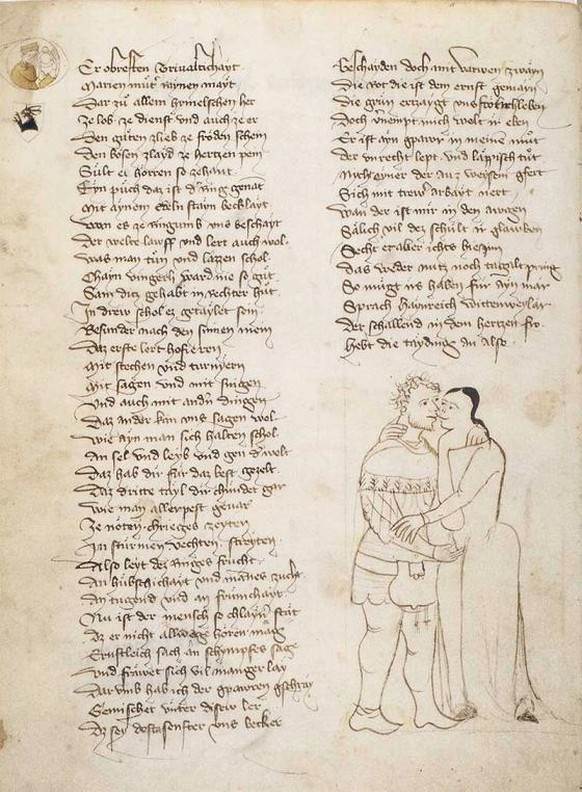 Er obresten Trivaltichayt
Marien můt raynen mayt
Dar zů allem himelschen her
Ze lob ze dienst und auch ze er
Den gůten zlieb ze fröden schein
Den bösen zlayd ze hertzen pein
Sült es hören so zehant
Eyn půch daz ist d ring genāt
Mit aynem edeln stayn becklayt
Wan es ze ringumb uns beschayt
Der welte lawff und lert auch wol
Was man tůn und lazzen schol
Chayn vingerli ward nie so gůt
Sam ditz gehabt in rechter hůt
In drew schol ez getaylet sein
Besunder nach den sinnen mein
Daz erste lert hofieren
Mit stechen und turnyern
Mit sagen und mit singen
Und auch mit andn dingen
Daz ander kan uns sagen wol
Wie ayn man sich halten schol
An sel und leyb und gen d welt
Daz hab dir für daz best gezelt
Daz dritte tayl dir chündet gar
Wie man allerpest gevar
Ze nöten chrieges zeyten
In stürmen vechten streyten
Also leyt dez ringes frucht
An hübschichayt und mānes zucht
An tugend und an frümchayt
Nu ist der mensch so chlayn stät
Dz er nicht allwege hören mag
Ernstleich sach an schympfes sage
Und fräwet sich vil manger lay
Darumb hab ich der gpawren gschray
Gemischet unter disew ler
Dz sey dest senfter uns becker
Geschayden doch mit varwen zwayn
Die rot die ist dem ernst gemayn
Die grün ertzaygt uns törpelleben
Doch vnempt mich welt ir eben
Er ist ayn gpawr in meinem můt
Der unrecht lept und läppisch tůt
Nicht ayner der auz weysem gfert
Sich mit trewr arbayt nert
Wan der ist mir in den awgen
Sälich vil dez schült ir glawben
Secht er aller ichts hie inn
Das weder nutz noch tagalt pring
So mügt irs haben für ayn mär
Sprach haynreich wittenweylär
Der schallend in dem hertzen fro
Hebt die taydinch an also